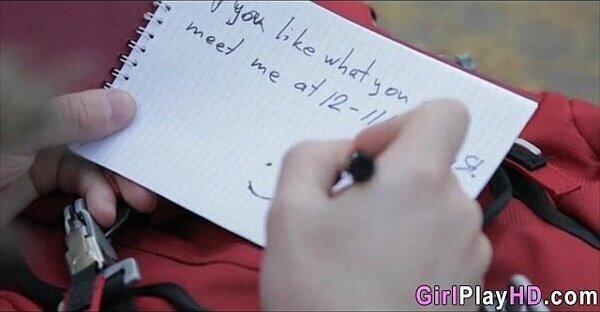 you like what you
meet me at 12-11
St.
GirlPlayHD.com